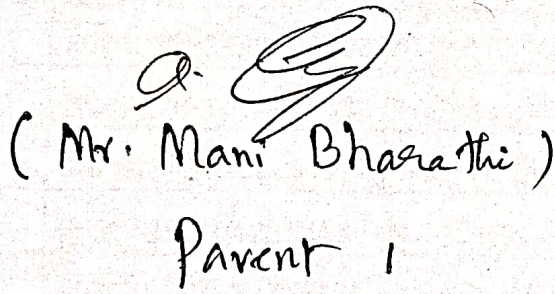 (Mr. Mani Bharathi)
Parent 1